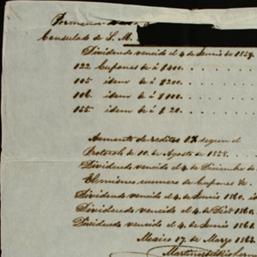 Consulado de S. M.
Dividendo vencido el 4 de Junio de 1859.
122 Cupones de á $400.
105 idem de á $200.
106 idem de á $100.
155 idem de á $20.
Aumento de creditos segun el
Protocolo de 10 de Agosto de
Dividendo vencido el 4 de Diciembre de
numero de Cupones &.
Dividendo vencido el 4 de Junio 1860.
Dividendo vencido el 4 de 1860
Dividendo vencido el 4 de Junio
Mexico 17 de Marzo 1862.